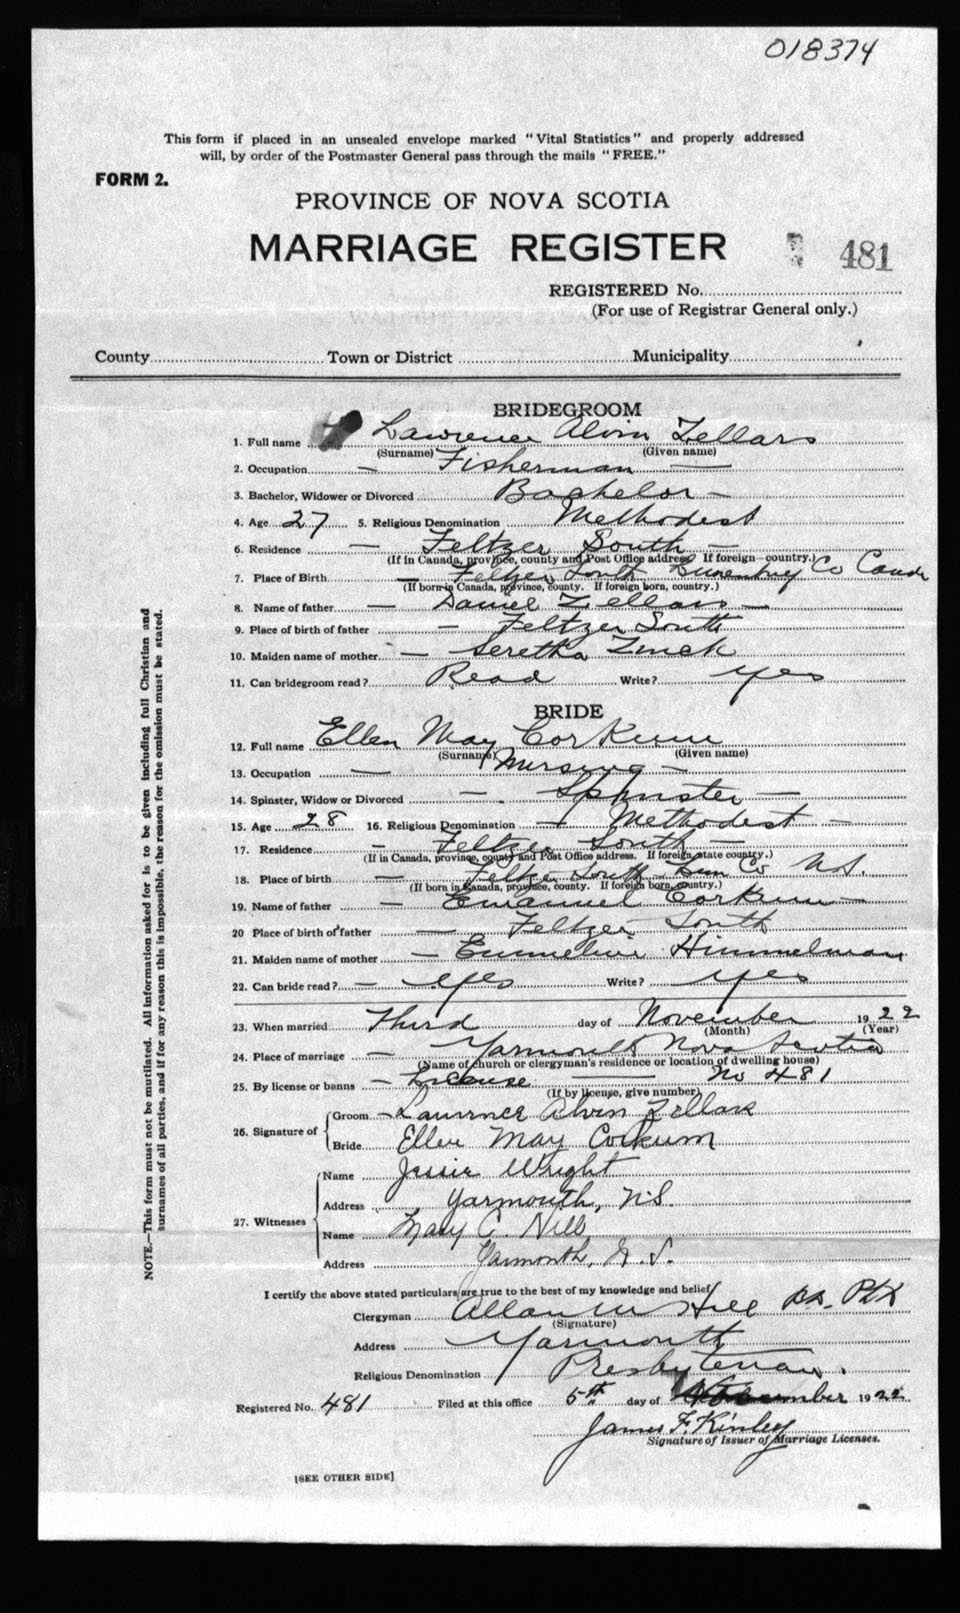 018374
This form if placed in an unsealed envelope marked "Vital Statistics" and properly addressed
will, by order of the Postmaster General pass through the mails "FREE."
FORM 2.
PROVINCE OF NOVA SCOTIA
MARRIAGE REGISTER
481
REGISTERED No.
(For use of Registrar General only.)
County Town or District Municipality
BRIDEGROOM
1. Full name Lawrence Alvin Zellars
(Surname) (Given name)
2. Occupation — Fisherman —
3. Bachelor, Widower or Divorced Bachelor —
4. Age 27 5. Religious Denomination Methodest
6. Residence — Feltzer South —
(If in Canada, province, county and Post Office address. If foreign country.)
7. Place of Birth — Feltzer South Co
(If born in Canada, province, county. If foreign born, country.)
8. Name of father — Daniel Zellars —
9. Place of birth of father — Feltzer South
10. Maiden name of mother — Seretha Zinck
11. Can bridegroom read? Read Write? yes
BRIDE
12. Full name Ellen May Corkum
(Surname) (Given name)
13. Occupation — Nursing —
14. Spinster, Widow or Divorced — Sphnster —
15. Age 28 16. Religious Denomination — Methodest —
17. Residence — Feltzer South —
(If in Canada, province, county and Post Office address. If foreign, state country.)
18. Place of birth — Feltzer South Lun Co N.S.
(If born in Canada, province, county. If foreign born, country.)
19. Name of father — Emanuel Corkum —
20 Place of birth of father — Feltzer South
21. Maiden name of mother — Himmelman
22. Can bride read? — yes Write? yes
23. When married Third day of November 1922
(Month) (Year)
24. Place of marriage — Yarmouth Nova Scotia
(Name of church or clergyman's residence or location of dwelling house)
25. By license or banns — License No 481
(If by license, give number)
26. Signature of Groom — Lawrence Alvin Zellars
Bride Ellen May Corkum
27. Witnesses Name Jessie Wright
Address Yarmouth, N.S.
Name Mary C. Hill
Address Yarmouth, N.S.
I certify the above stated particulars are true to the best of my knowledge and belief
Clergyman Allan M Hill
(Signature)
Address Yarmouth
Religious Denomination Presbyterian.
Registered No. 481 Filed at this office 5th day of November 1922
James F. Kinley
Signature of Issuer of Marriage Licenses.
[SEE OTHER SIDE]
NOTE.—This form must not be mutilated. All information asked for is to be given including full Christian and
surnames of all parties, and if for any reason this is impossible, the reason for the omission must be stated.